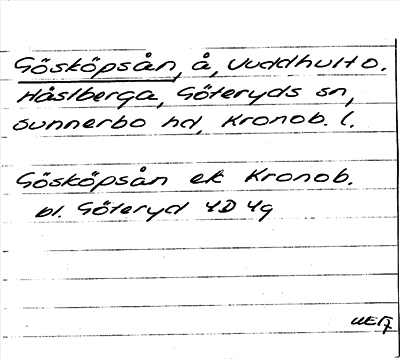 Gösköpsån, å, Vuddhult o.
Håslberga, Göteryds sn,
Sunnerbo hd, Kronob. l.
Gösköpsån ek Kronob.
bl. Göteryd 4D 4g